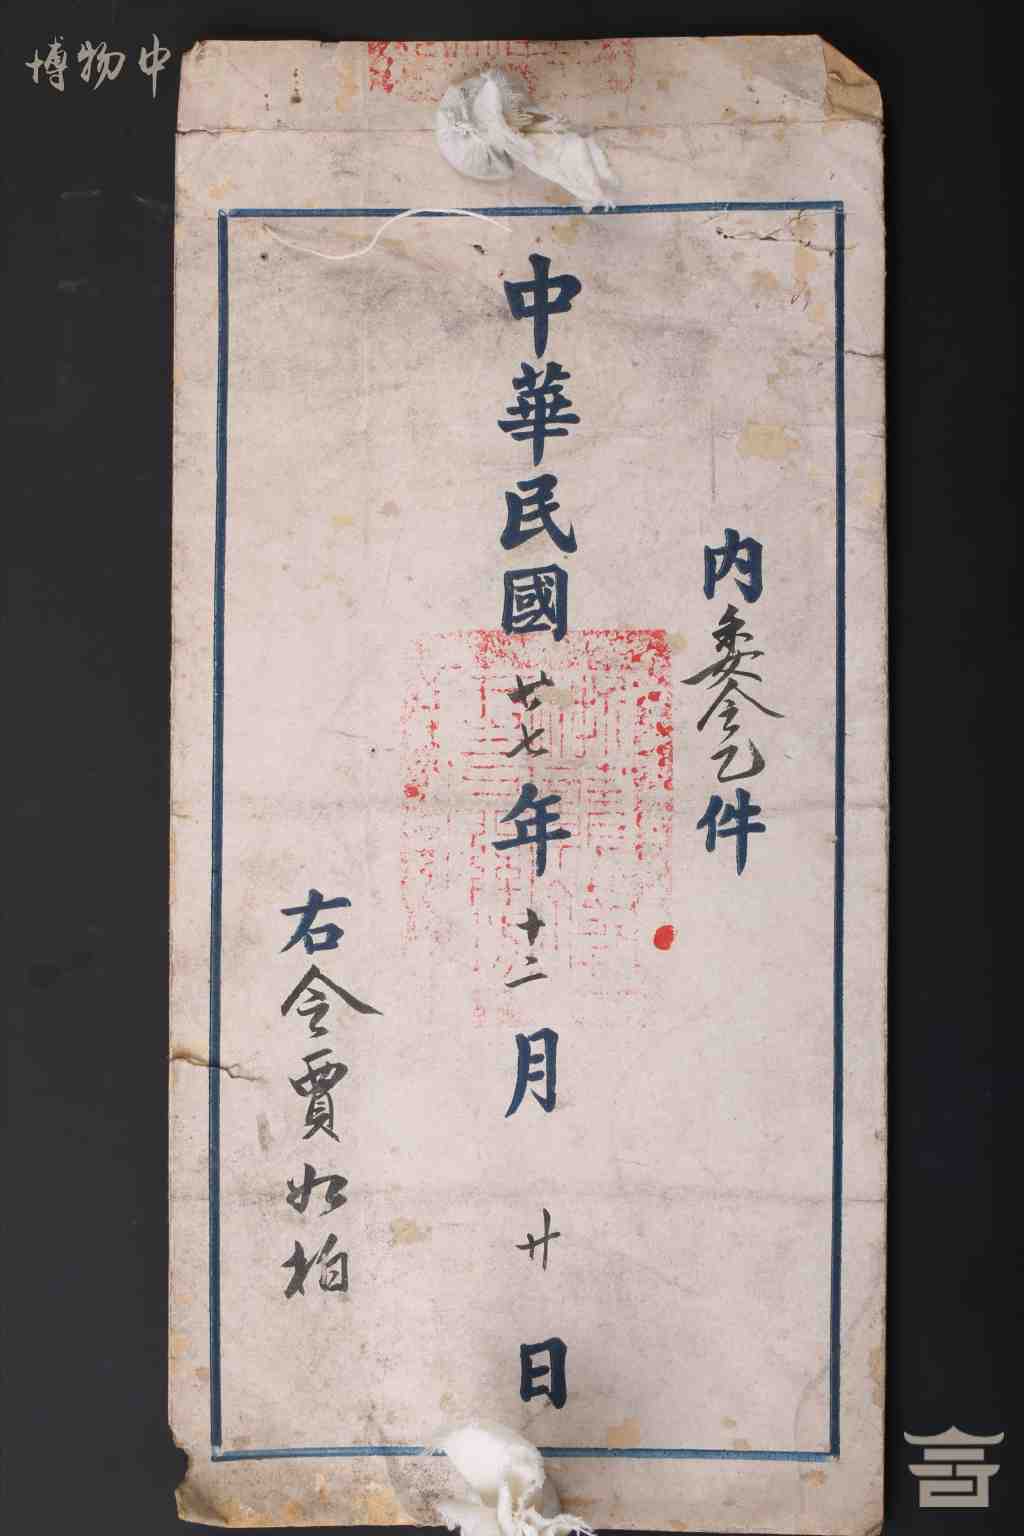 博物中
内委令乙件
中華民國廿七年十二月廿日
右令賈如柏